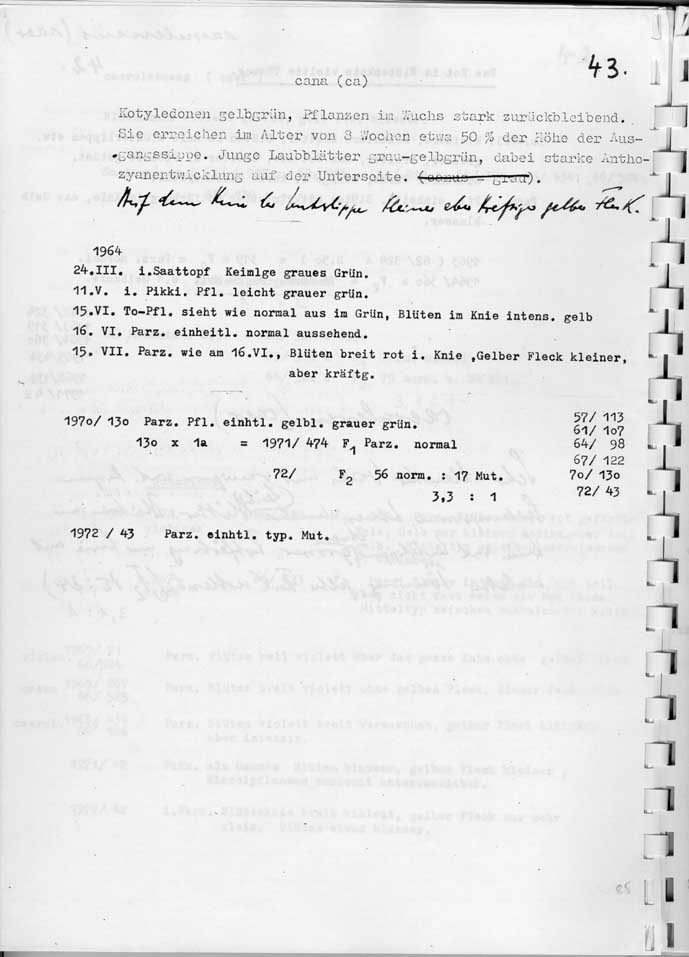 43.
cana (ca)
Kotyledonen gelbgrün, Pflanzen im Wuchs stark zurückbleibend.
Sie erreichen im Alter von 3 Wochen etwa 50 % der Höhe der Aus-
gangssippe. Junge Laubblätter grau-gelbgrün, dabei starke Antho-
zyanentwicklung auf der Unterseite. (canus = grau).
Auf dem Knie der Unterlippe kleiner aber kräftiger gelber Fleck.
1964
24.III. i.Saattopf Keimlge graues Grün.
11.V. i. Pikki. Pfl. leicht grauer grün.
15.VI. To-Pfl. sieht wie normal aus im Grün, Blüten im Knie intens. gelb
16. VI. Parz. einheitl. normal aussehend.
15. VII. Parz. wie am 16.VI., Blüten breit rot i. Knie ,Gelber Fleck kleiner,
aber kräftg.
1970/ 130 Parz. Pfl. einhtl. gelbl. grauer grün. 57/ 113
61/ 107
130 x 1a = 1971/ 474 F1 Parz. normal 64/ 98
67/ 122
72/ F2 56 norm. : 17 Mut. 70/ 130
3,3 : 1 72/ 43
1972 / 43 Parz. einhtl. typ. Mut.